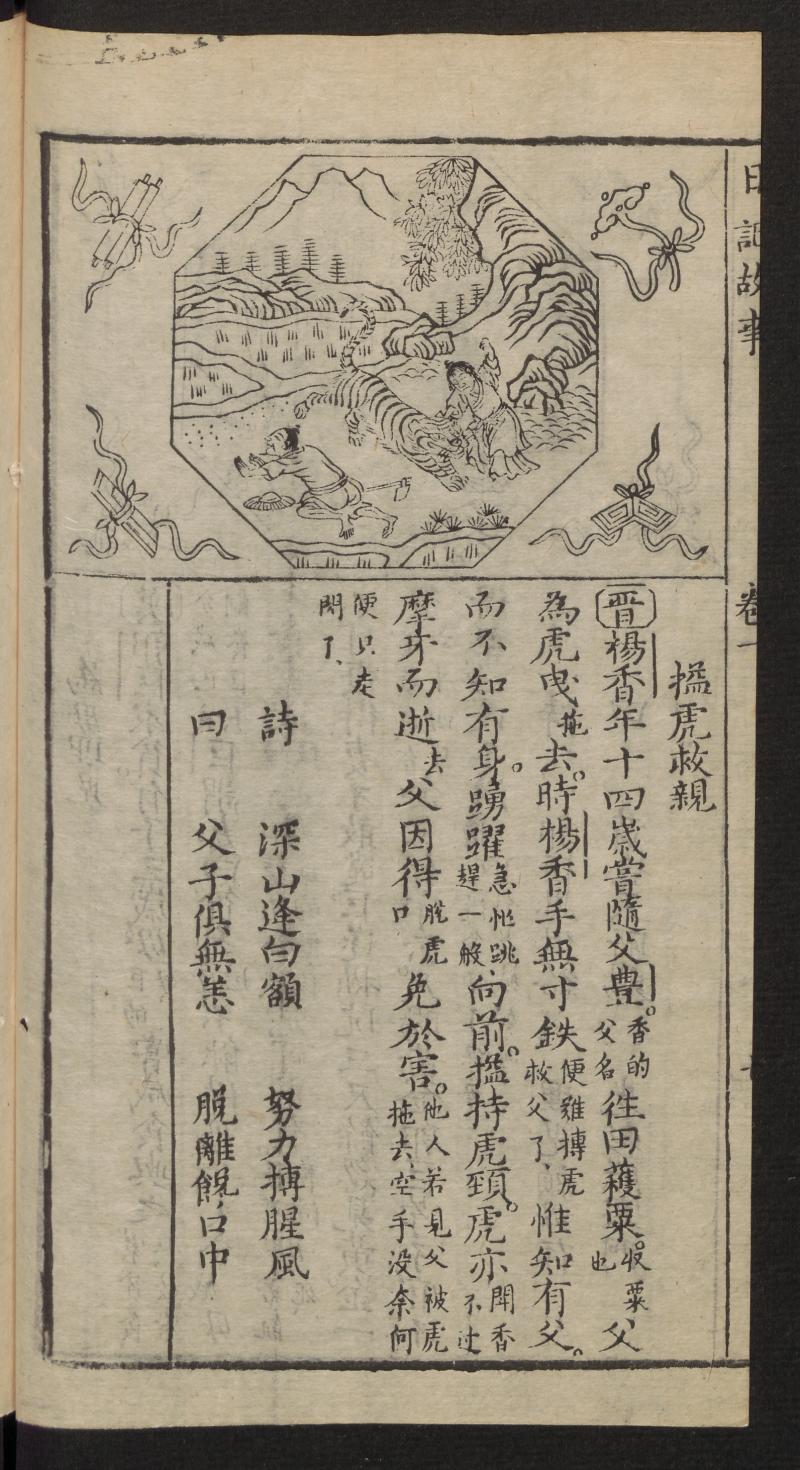 日記故事 卷一
搤虎救親
晋楊香年十四歲嘗隨父豊。香的父名徃田穫粟。收粟也父
為虎曳拖去。時楊香手無寸鉄便難搏虎救父了、惟知有父。
而不知有身。踴躍急忙跳趕一般向前。搤持虎頸。虎亦閗香不过
摩牙而逝去、父因得脫虎口免於害。他人若見父被虎拖去、空手沒柰何
便只走開了、
詩 深山逢白額 努力搏腥風
曰 父子俱無恙 脫離饞口中